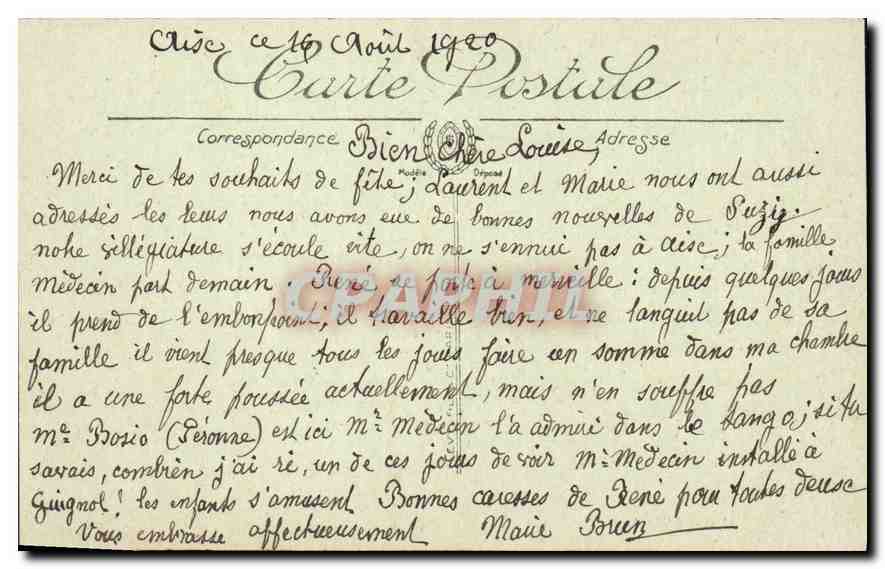 Aix ce 16 Août 1920
Carte Postale
Correspondance Adresse
Bien Chère Louise,
Modèle Déposé
Merci de tes souhaits de fête; Laurent et Marie nous ont aussi
adressés les leurs nous avons eue de bonnes nouvelles de Suzig.
notre villégiature s'écoule vite, on ne s'ennui pas à Aix; la famille
Médecin part demain. René se porte à merveille: depuis quelques jours
il prend de l'embonpoint, il travaille bien, et ne languit pas de sa
famille il vient presque tous les jours faire un somme dans ma chambre
il a une forte poussée actuellement, mais n'en souffre pas
Me Bosio (Péronne) est ici Mr Médecin l'a admiré dans le tango; si tu
savais, combien j'ai ri, un de ces jours de voir Mr Médecin installé à
Guignol! les enfants s'amusent Bonnes caresses de René pour toutes deux
Vous embrasse affectueusement Marie Brun
CPAPHIL